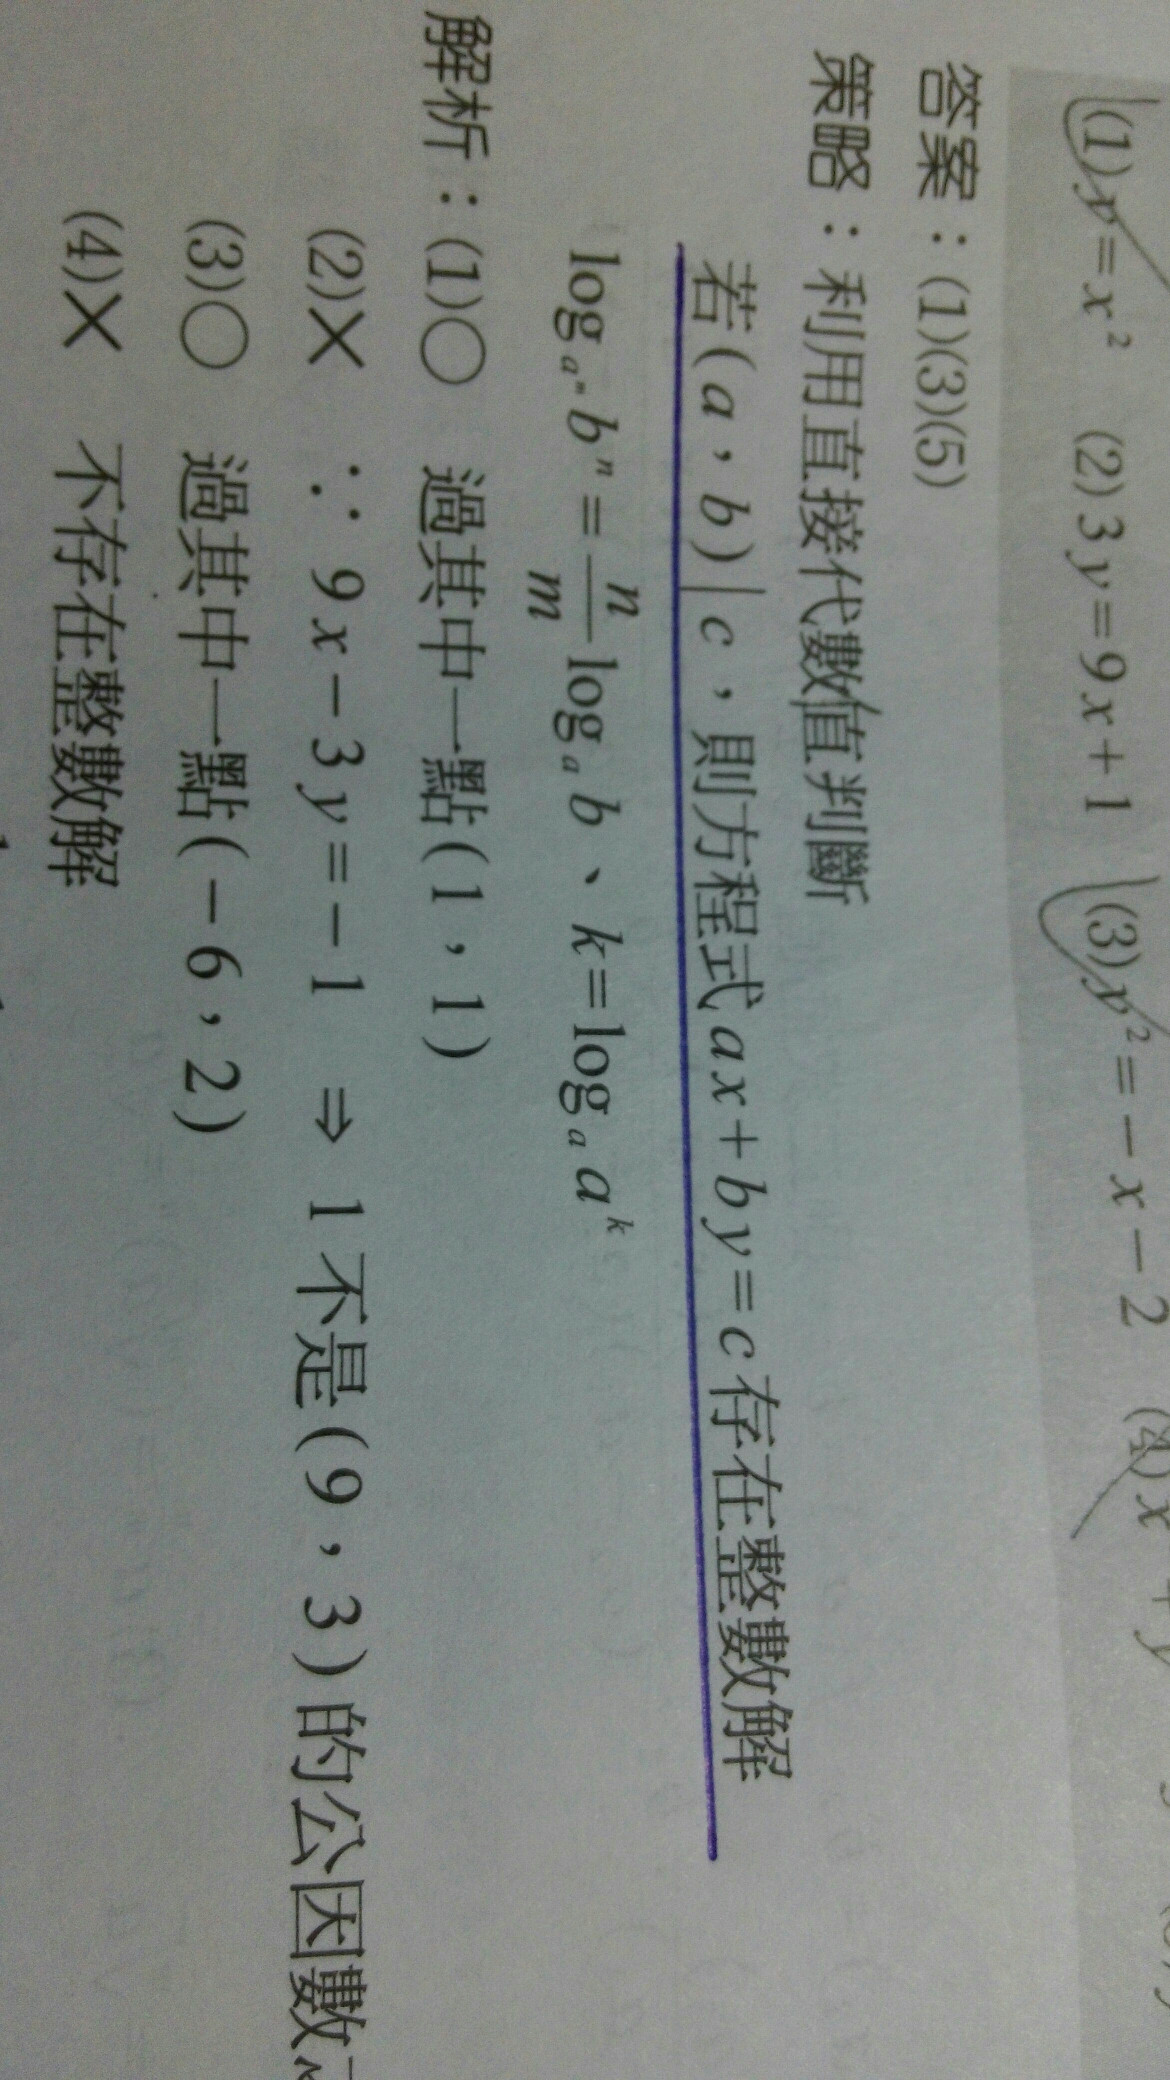 (1) y = x² (2) 3y = 9x + 1 (3) y² = -x - 2 (4) x
答案：(1)(3)(5)
策略：利用直接代數值判斷
若(a，b)|c，則方程式ax+by=c存在整數解
logₐᵐ bⁿ = n/m logₐ b、k = logₐ aᵏ
解析：(1)○ 過其中一點(1，1)
(2)× ∵ 9x - 3y = -1 ⇒ 1 不是(9，3)的公因數
(3)○ 過其中一點(-6，2)
(4)× 不存在整數解